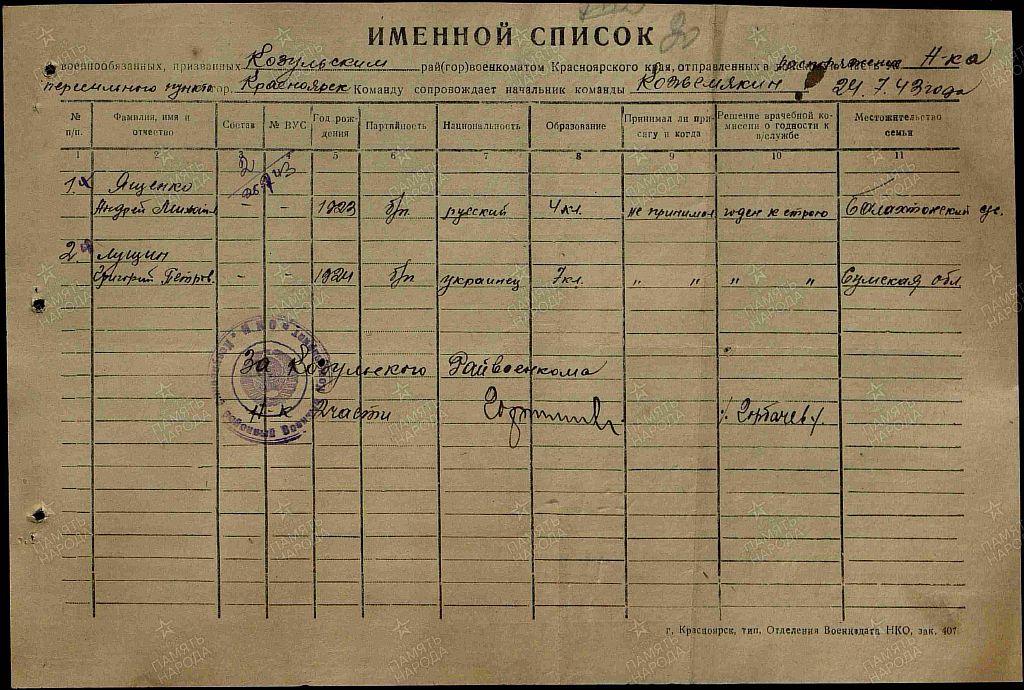 ИМЕННОЙ СПИСОК
30
военнообязанных, призванных Козульским рай(гор)военкоматом Красноярского края, отправленных в распоряжение Н-ка
пересыльного пункта гор. Красноярск Команду сопровождает начальник команды Кожемякин 24.7.43 года
№ п/п. Фамилия, имя и отчество Состав № ВУС Год рождения Партийность Национальность Образование Принимал ли присягу и когда Решение врачебной комиссии о годности к в/службе Местожительство семьи
1 2 3 4 5 6 7 8 9 10 11
1. Ященко
Андрей Михаил - - 1923 б/п русский 4 кл. не принимал годен к строю Балахтонский с/с.
2. Лущин
Григорий Петров. - - 1924 б/п украинец 7 кл. " " " " Сумская обл.
За Козульского Райвоенкома
Н-к 2 части /Горбачев/.
г. Красноярск, тип. Отделения Воениздата НКО, зак. 407
ПАМЯТЬ НАРОДА